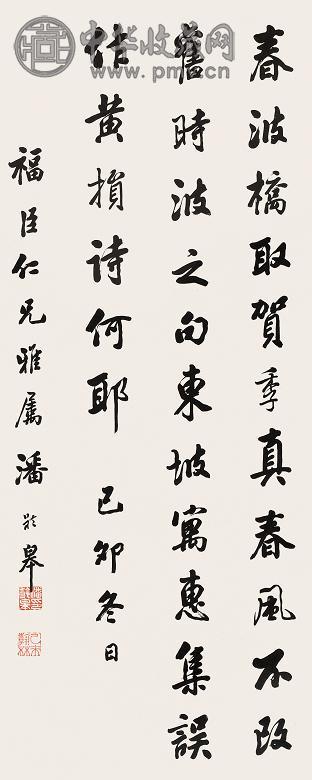 中华收藏网
www.pmcn.cn
春波橋取賀季真春風不改
舊時波之句東坡寓惠集誤
作黃損詩何耶 己卯冬日
福臣仁兄雅屬潘齡皋